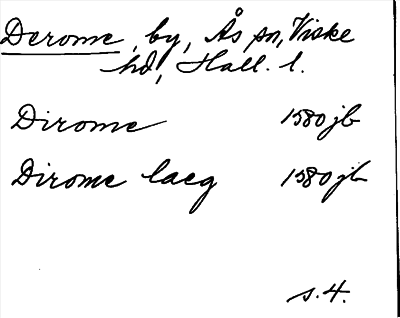 Derome, by, Ås sn, Viske
hd, Hall. l.
Dirome 1580 jb
Dirome laeg 1580 jb
s. 4.